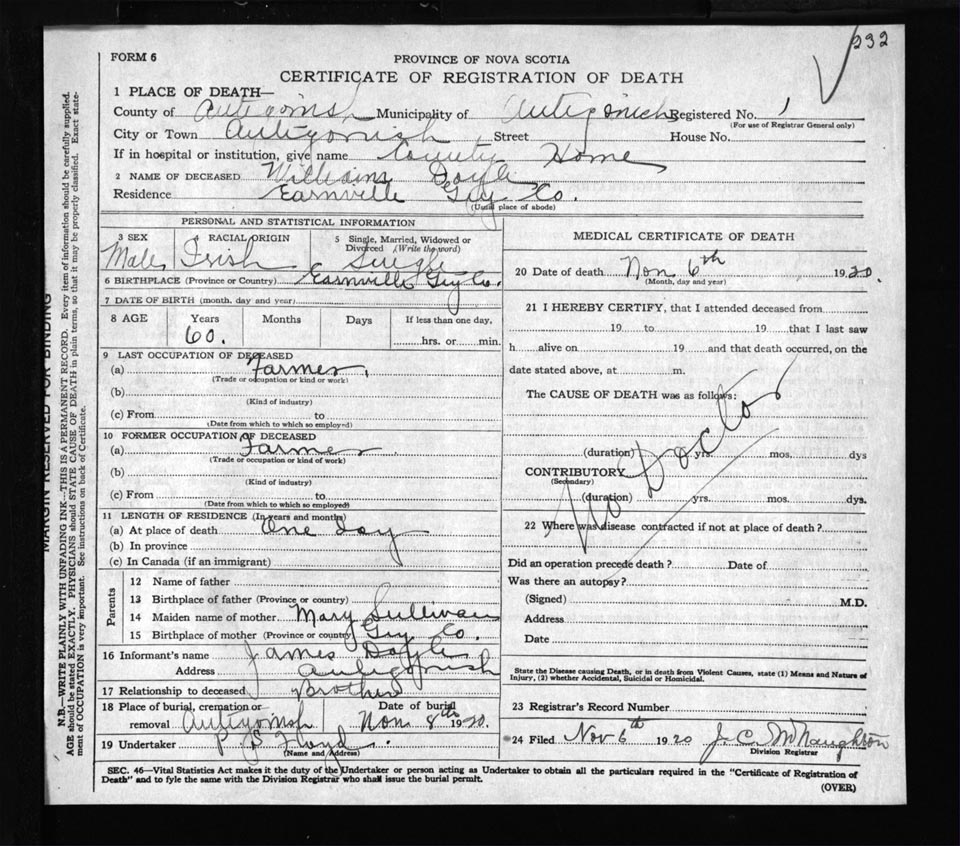 232
FORM 6
PROVINCE OF NOVA SCOTIA
CERTIFICATE OF REGISTRATION OF DEATH
1 PLACE OF DEATH—
County of Antigonish Municipality of Antigonish Registered No. 1
(For use of Registrar General only)
City or Town Antigonish Street House No.
If in hospital or institution, give name County Home
2 NAME OF DECEASED William Doyle
Residence Earnville Guy Co.
(Usual place of abode)
PERSONAL AND STATISTICAL INFORMATION
3 SEX 4 RACIAL ORIGIN 5 Single, Married, Widowed or Divorced (Write the word)
Male Irish Single
6 BIRTHPLACE (Province or Country) Earnville Guy Co.
7 DATE OF BIRTH (month, day and year)
8 AGE Years Months Days If less than one day,
60. hrs. or min.
9 LAST OCCUPATION OF DECEASED
(a) Farmer.
(Trade or occupation or kind or work)
(b)
(Kind of industry)
(c) From to
(Date from which to which so employed)
10 FORMER OCCUPATION OF DECEASED
(a) Farmer
(Trade or occupation or kind of work)
(b)
(Kind of industry)
(c) From to
(Date from which to which so employed)
11 LENGTH OF RESIDENCE (In years and months)
(a) At place of death One Day
(b) In province
(c) In Canada (if an immigrant)
Parents
12 Name of father
13 Birthplace of father (Province or country)
14 Maiden name of mother Mary Sullivan
15 Birthplace of mother (Province or country) Guy Co.
16 Informant's name James Doyle
Address Antigonish
17 Relationship to deceased Brother
18 Place of burial, cremation or Date of burial
removal Antigonish Nov. 8th 1920.
19 Undertaker P. S. Floyd.
(Name and Address)
MEDICAL CERTIFICATE OF DEATH
20 Date of death Nov 6th 1920.
(Month, day and year)
21 I HEREBY CERTIFY, that I attended deceased from
19 to 19 that I last saw
h alive on 19 and that death occurred, on the
date stated above, at m.
The CAUSE OF DEATH was as follows:
No Doctor
(duration) yrs. mos. dys
CONTRIBUTORY
(Secondary)
(duration) yrs. mos. dys.
22 Where was disease contracted if not at place of death?
Did an operation precede death? Date of
Was there an autopsy?
(Signed) M.D.
Address
Date
State the Disease causing Death, or in death from Violent Causes, state (1) Means and Nature of
Injury, (2) whether Accidental, Suicidal or Homicidal.
23 Registrar's Record Number
24 Filed Nov 6th 1920 J. C. McNaughton
Division Registrar
SEC. 46—Vital Statistics Act makes it the duty of the Undertaker or person acting as Undertaker to obtain all the particulars required in the "Certificate of Registration of
Death" and to fyle the same with the Division Registrar who shall issue the burial permit.
(OVER)
MARGIN RESERVED FOR BINDING
N.B.—WRITE PLAINLY WITH UNFADING INK—THIS IS A PERMANENT RECORD. Every item of information should be carefully supplied.
AGE should be stated EXACTLY. PHYSICIANS should STATE CAUSE OF DEATH in plain terms, so that it may be properly classified. Exact state-
ment of OCCUPATION is very important. See instructions on back of Certificate.